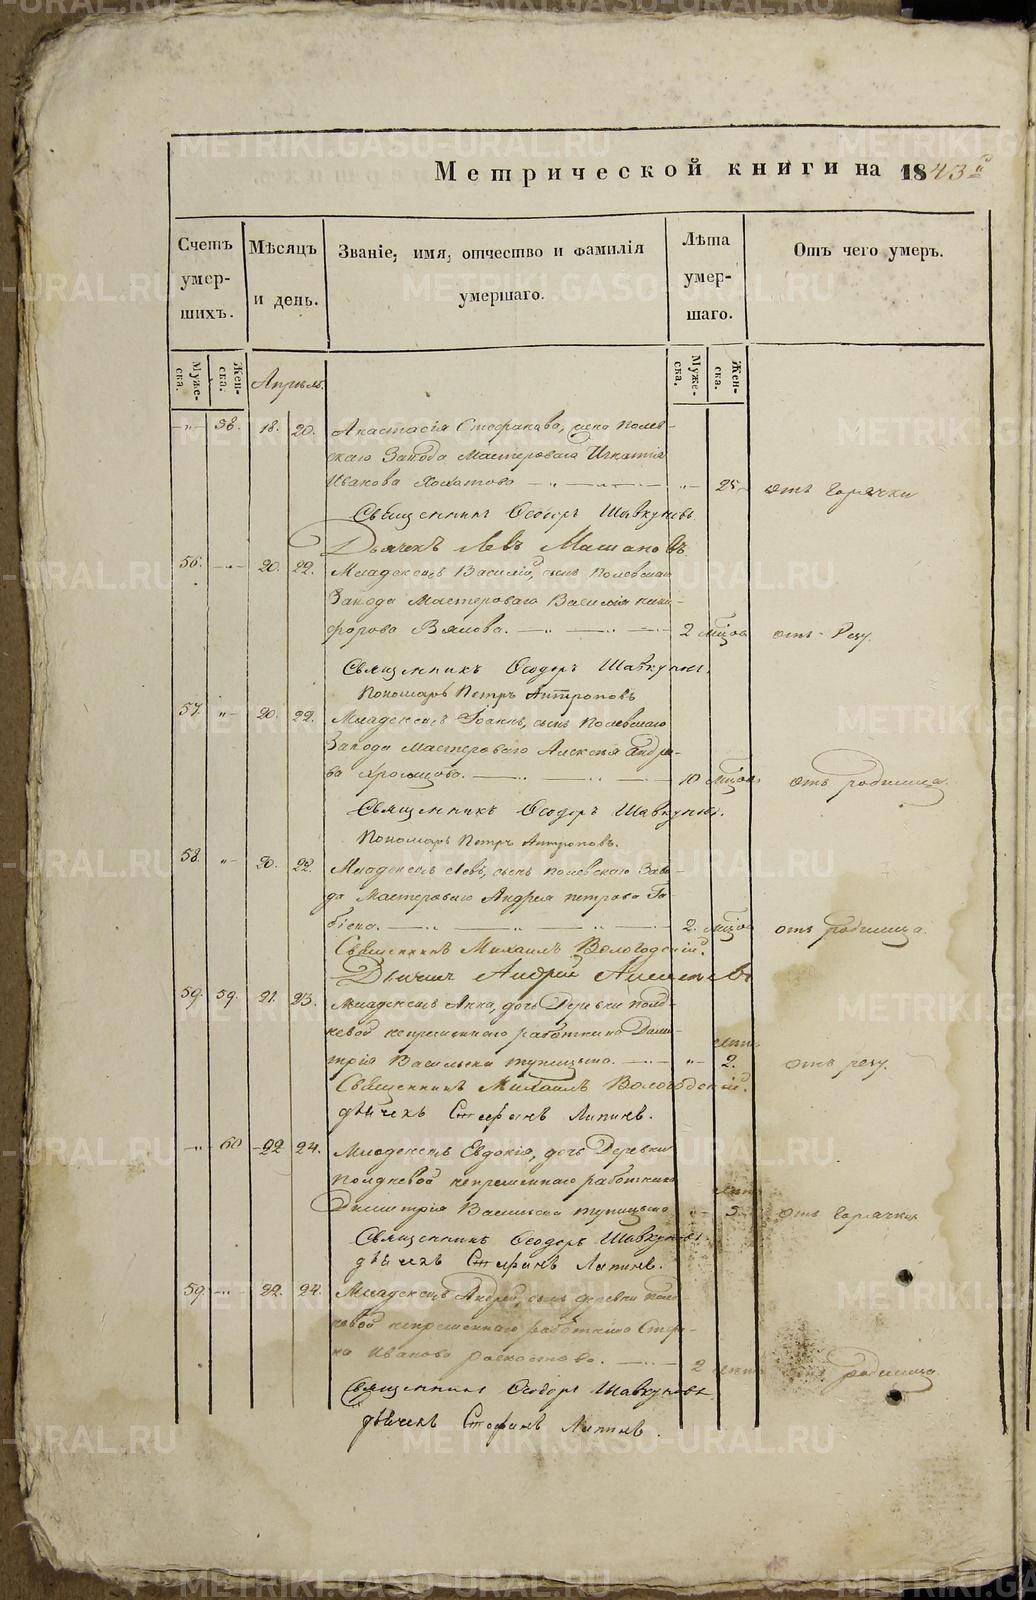 Метрической книги на 1843й
Счетъ умер-шихъ.
Мѣсяцъ и день.
Званіе, имя, отчество и фамилія умершаго.
Лѣта умер-шаго.
Отъ чего умеръ.
Муже-ска.
Жен-ска.
Апрель.
Муже-ска.
Жен-ска.
-„- 58. 18. 20. Анастасія Стефанова, жена Полев-
скаго Завода Мастероваго Игнатія
Иванова -„- 25 отъ Горячки
Священникъ Ѳеодоръ Шавкуновъ
Дьячекъ Левъ
56. -„- 20. 22. Младенецъ Василій, сынъ Полевскаго
Завода Мастероваго Василія Ники-
форова Вялова. 2 мцов отъ Резу.
Священникъ Ѳеодоръ Шавкуновъ.
Пономарь Петръ Антроповъ
57. „- 20. 22. Младенецъ Іоаннъ, сынъ Полевскаго
Завода Мастероваго Алексѣя Андре-
ва 10 мцов отъ родимца.
Священникъ Ѳеодоръ Шавкуновъ.
Пономарь Петръ Антроповъ.
58. „- 20. 22. Младенецъ Левъ, сынъ Полевскаго Заво-
да Мастероваго Андрея Петрова
2. мцов отъ родимца.
Священникъ Михаилъ Вологодскій.
Дьячекъ Андрей
59. 59. 21. 23. Младенецъ Анна, дочь Деревни Полд-
невой непременнаго работника Дми-
трія Васильева Тупицына. -„- летъ 2. отъ резу.
Священникъ Михаилъ Вологодскій.
дьячекъ Стефанъ Липинъ.
-„- 60 22 24. Младенецъ Евдокія, дочь Деревни
Полдневой непременнаго работника
Димитрія Васильева Тупицына „- летъ 3. отъ Горячки
Священникъ Ѳеодоръ Шавкуновъ.
дьячекъ Стефанъ Липинъ.
59. -„- 22. 24. Младенецъ Андрей, сынъ деревни Полд-
невой непременнаго работника Стефа-
на Иванова 2 летъ отъ родимца.
Священникъ Ѳеодоръ Шавкуновъ
дьячекъ Стефанъ Липинъ.
METRIKI.GASO-URAL.RU